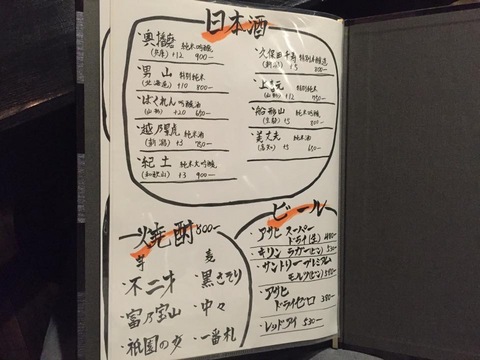 日本酒
・奥播磨 純米吟醸
(兵庫) +12 900-
・男山 特別純米
(北海道) +10 800-
・ばくれん 吟醸酒
(山形) +20 650-
・越乃景虎 純米酒
(新潟) +3 750-
・紀土 純米大吟醸
(和歌山) +3 900-
・久保田千寿 特別本醸造
(新潟) +5 800-
・上喜元 特別純米
(山形) +12 750-
・船形山 純米吟醸
+5 800-
・美丈夫 純米酒
(高知) +5 650-
焼酎 800-
芋
・不二才
・富乃宝山
・祇園の夜
麦
・黒さそり
・中々
・一番札
ビール
・アサヒ スーパー
ドライ(生) 480-
・キリン ラガー(ビン) 530-
・サントリー プレミアム
モルツ(ビン) 530-
・アサヒ
ドライゼロ 380-
・レッドアイ 530-